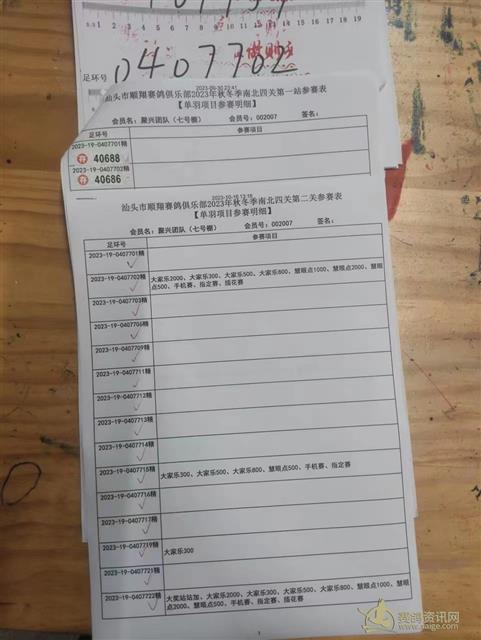 5 1 2 3 4 5 6 7 8 9 10 11 12 13 14 15 16 17 18 19
足环号 0407702
2023-09-30 23:41
汕头市顺翔赛鸽俱乐部2023年秋冬季南北四关第一站参赛表
【单羽项目参赛明细】
会员名：聚兴团队（七号棚） 会员号：002007 签名：
足环号 参赛项目
2023-19-0407701精
符 40688
2023-19-0407702精
符 40686
汕头市顺翔赛鸽俱乐部2023年秋冬季南北四关第二关参赛表
【单羽项目参赛明细】
会员名：聚兴团队（七号棚） 会员号：002007 签名：
足环号 参赛项目
2023-19-0407701精
2023-19-0407702精 大家乐2000、大家乐300、大家乐500、大家乐800、慧眼点1000、慧眼点2000、慧眼
点500、手机赛、指定赛、插花赛
2023-19-0407703精
2023-19-0407706精
2023-19-0407709精
2023-19-0407711精
2023-19-0407712精
2023-19-0407713精
2023-19-0407714精
2023-19-0407715精 大家乐300、大家乐500、大家乐800、慧眼点500、手机赛、指定赛
2023-19-0407716精
2023-19-0407717精
2023-19-0407719精 大家乐300
2023-19-0407721精
2023-19-0407722精 大奖站站加、大家乐2000、大家乐300、大家乐500、大家乐800、慧眼点1000、慧眼
点2000、慧眼点500、手机赛、指定赛、插花赛
1
赛鸽资讯网
www.saige.com